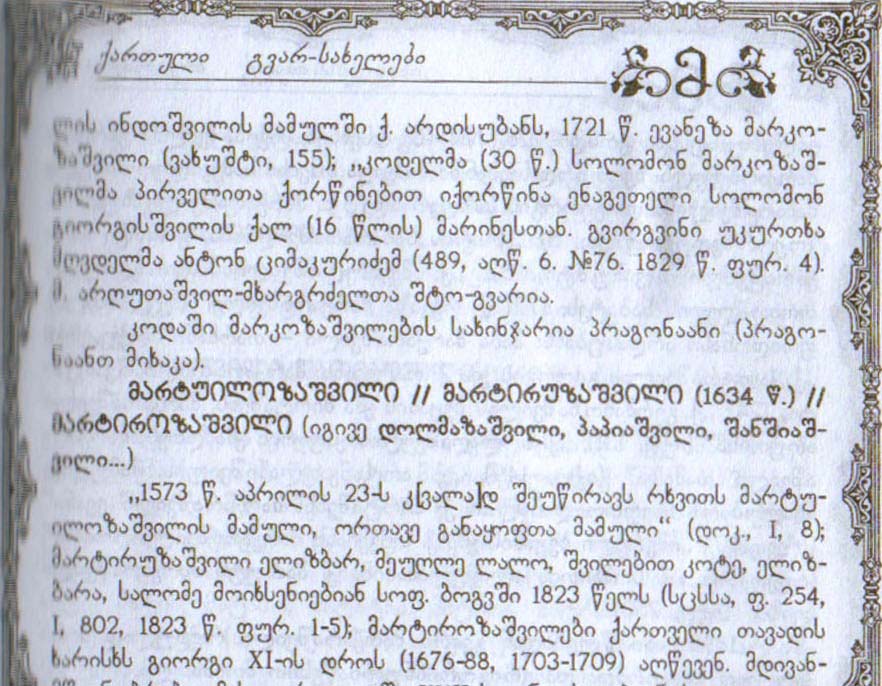 ქართული გვარ-სახელები მ
ლის ინდოშვილის მამულში ქ. არდისუბანს, 1721 წ. ევანეზა მარკო-
ზაშვილი (ვახუშტი, 155); ,,კოდელმა (30 წ.) სოლომონ მარკოზაშ-
ვილმა პირველითა ქორწინებით იქორწინა ენაგეთელი სოლომონ
გიორგისშვილის ქალ (16 წლის) მარინესთან. გვირგვინი უკურთხა
მღვდელმა ანტონ ციმაკურიძემ (489, აღწ. 6. №76. 1829 წ. ფურ. 4).
მ. არღუთაშვილ-მხარგრძელთა შტო-გვარია.
კოდაში მარკოზაშვილების სახინჯარია პრაგონაანი (პრაგო-
ნაანთ მიხაკა).
მარტუილოზაშვილი // მარტირუზაშვილი (1634 წ.) //
მარტიროზაშვილი (იგივე დოლმაზაშვილი, პაპიაშვილი, შანშიაშ-
ვილი...)
,,1573 წ. აპრილის 23-ს კ[ვალა]დ შეუწირავს რხვითს მარტუ-
ილოზაშვილის მამული, ორთავე განაყოფთა მამული“ (დოკ., I, 8);
მარტირუზაშვილი ელიზბარ, მეუღლე ლალო, შვილებით კოტე, ელიზ-
ბარა, სალომე მოიხსენიებიან სოფ. ბოგვში 1823 წელს (სცსსა, ფ. 254,
I, 802, 1823 წ. ფურ. 1-5); მარტიროზაშვილები ქართველი თავადის
ხარისხს გიორგი XI-ის დროს (1676-88, 1703-1709) აღწევენ. მდივან-